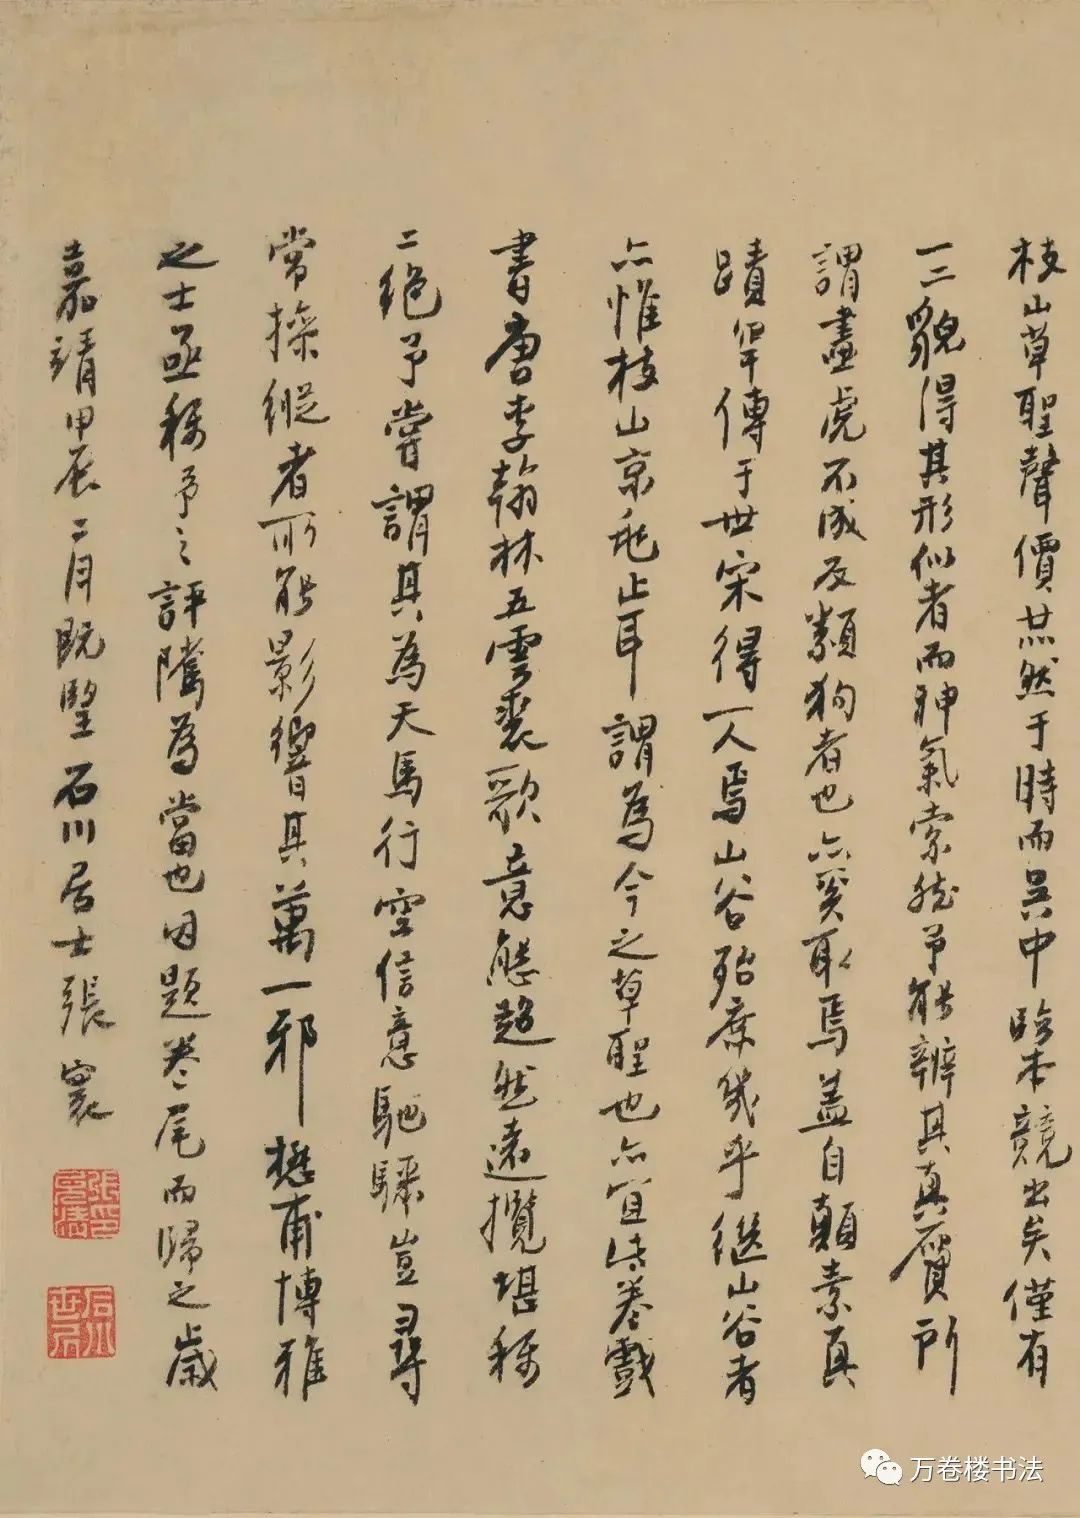 枝山草聖聲價烘然于時而吳中臨本競出矣僅有
一二貌得其形似者而神氣索然予能辨其真贋所
謂畫虎不成反類狗者也亦奚取焉蓋自顛素真
蹟罕傳于世宋得一人焉山谷殆庶幾乎繼山谷者
亦惟枝山京兆止耳謂為今之草聖也亦宜此卷戲
書唐李翰林五雲裘歌意態超然遠攬堪稱
二絕予嘗謂其為天馬行空信意馳驟豈尋
常操縱者所能影響其萬一邪懋甫博雅
之士亟稱予之評隲為當也因題卷尾而歸之歲
嘉靖甲辰二月既望石川居士張寰
石川
世居
万卷楼书法